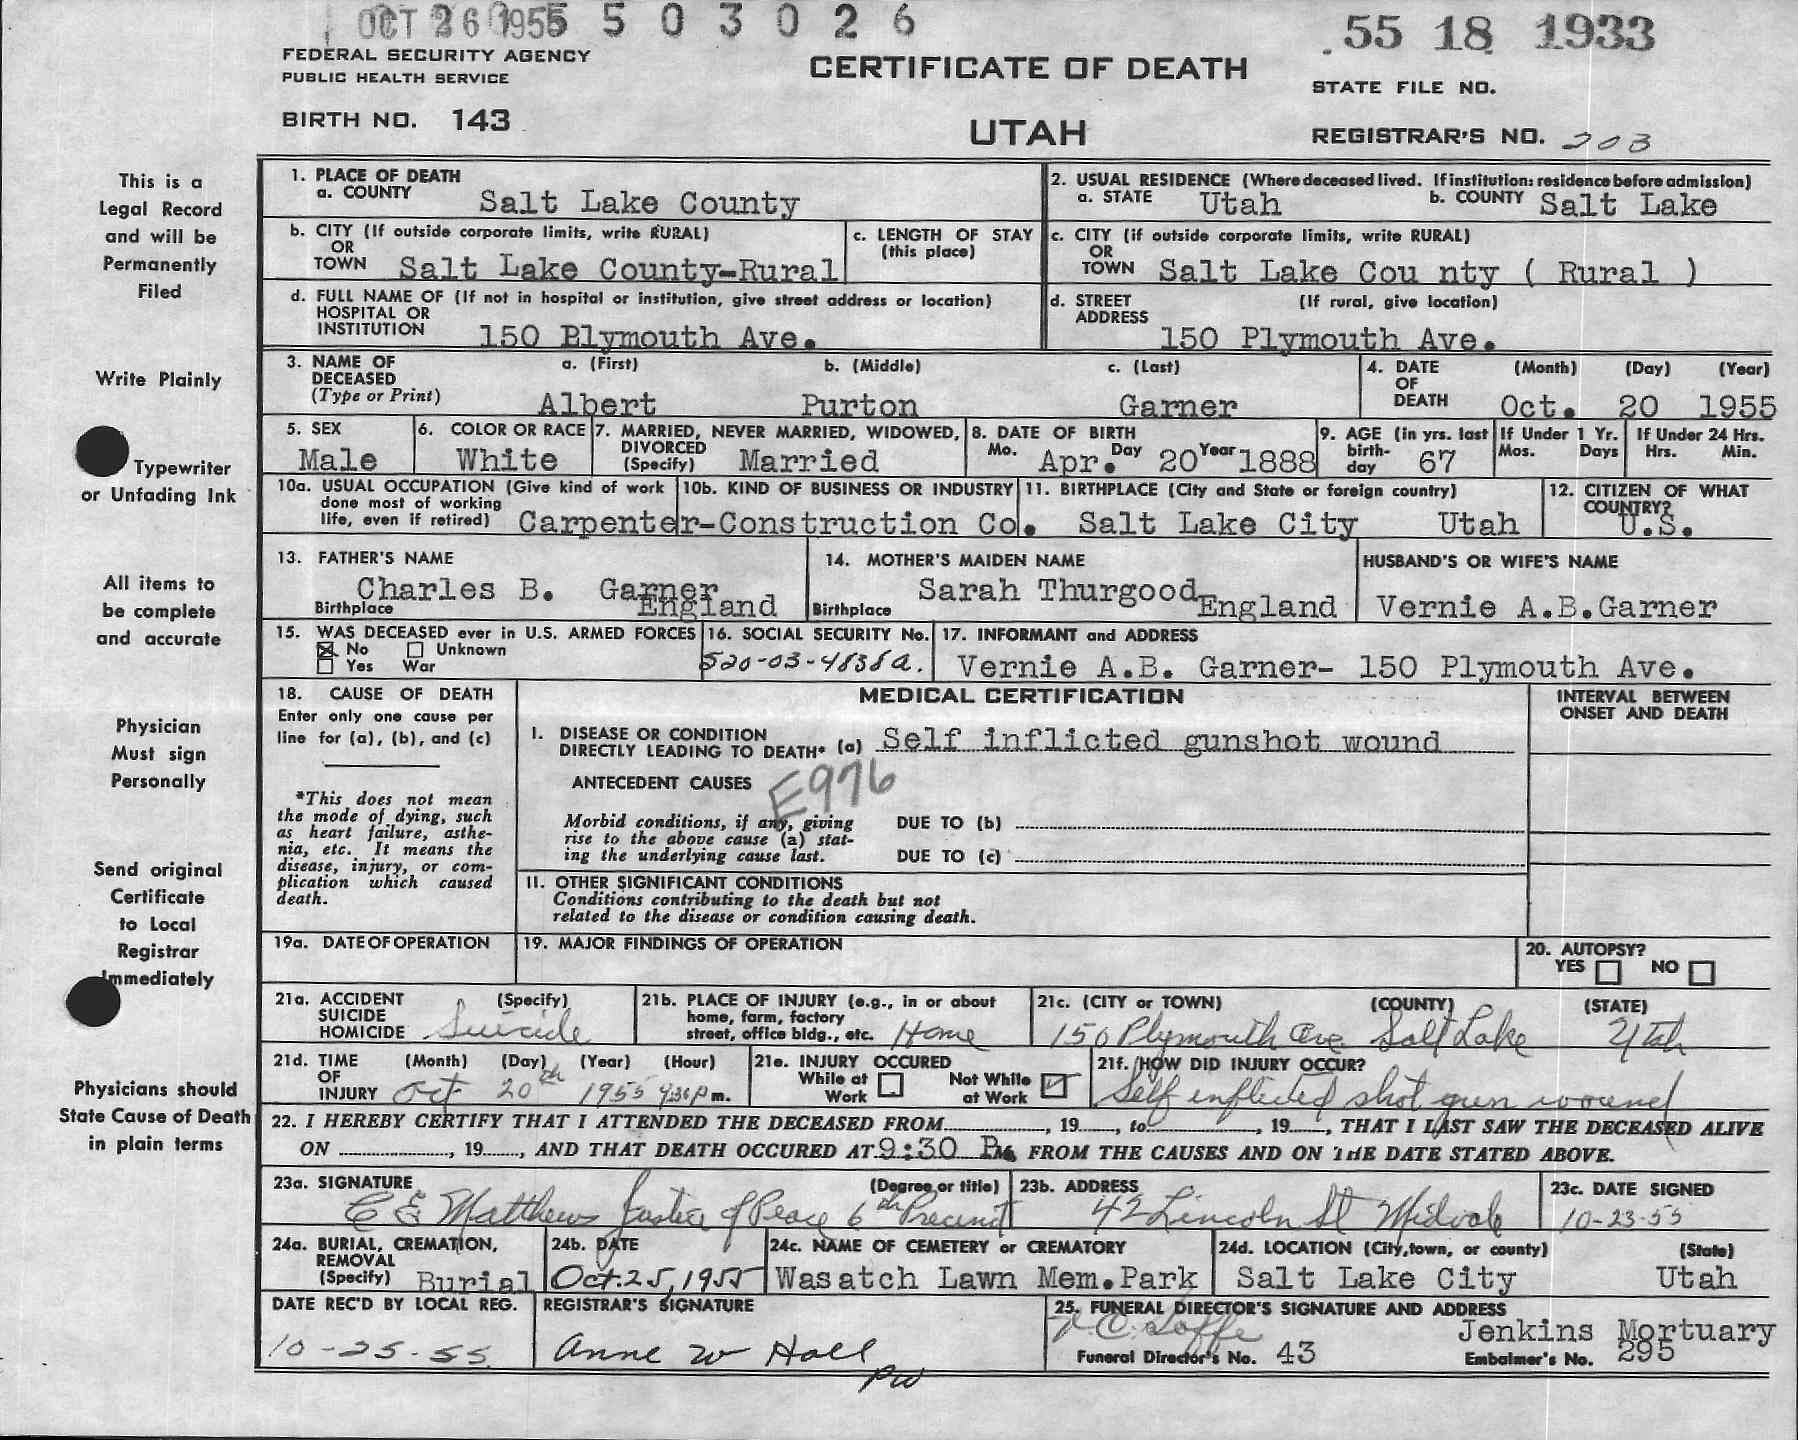 OCT 26 1955 5 5 0 3 0 2 6
55 18 1933
FEDERAL SECURITY AGENCY
PUBLIC HEALTH SERVICE
CERTIFICATE OF DEATH
STATE FILE NO.
BIRTH NO. 143
UTAH
REGISTRAR'S NO. 203
This is a
Legal Record
and will be
Permanently
Filed
Write Plainly
Typewriter
or Unfading Ink
All items to
be complete
and accurate
Physician
Must sign
Personally
Send original
Certificate
to Local
Registrar
Immediately
Physicians should
State Cause of Death
in plain terms
1. PLACE OF DEATH
a. COUNTY Salt Lake County
2. USUAL RESIDENCE (Where deceased lived. If institution: residence before admission)
a. STATE Utah b. COUNTY Salt Lake
b. CITY (If outside corporate limits, write RURAL)
OR
TOWN Salt Lake County-Rural
c. LENGTH OF STAY
(this place)
c. CITY (if outside corporate limits, write RURAL)
OR
TOWN Salt Lake Cou nty ( Rural )
d. FULL NAME OF (If not in hospital or institution, give street address or location)
HOSPITAL OR
INSTITUTION 150 Plymouth Ave.
d. STREET (If rural, give location)
ADDRESS
150 Plymouth Ave.
3. NAME OF a. (First) b. (Middle) c. (Last)
DECEASED
(Type or Print) Albert Purton Garner
4. DATE (Month) (Day) (Year)
OF
DEATH Oct. 20 1955
5. SEX
Male
6. COLOR OR RACE
White
7. MARRIED, NEVER MARRIED, WIDOWED,
DIVORCED
(Specify) Married
8. DATE OF BIRTH
Mo. Apr. Day 20 Year 1888
9. AGE (in yrs. last
birth-
day 67
If Under 1 Yr.
Mos. Days
If Under 24 Hrs.
Hrs. Min.
10a. USUAL OCCUPATION (Give kind of work
done most of working
life, even if retired) Carpenter-Construction Co.
10b. KIND OF BUSINESS OR INDUSTRY
11. BIRTHPLACE (City and State or foreign country)
Salt Lake City Utah
12. CITIZEN OF WHAT
COUNTRY?
U.S.
13. FATHER'S NAME
Charles B. Garner
Birthplace England
14. MOTHER'S MAIDEN NAME
Sarah Thurgood
Birthplace England
HUSBAND'S OR WIFE'S NAME
Vernie A.B.Garner
15. WAS DECEASED ever in U.S. ARMED FORCES
No Unknown
Yes War
16. SOCIAL SECURITY No.
520-03-4838a.
17. INFORMANT and ADDRESS
Vernie A.B. Garner- 150 Plymouth Ave.
18. CAUSE OF DEATH
Enter only one cause per
line for (a), (b), and (c)
*This does not mean
the mode of dying, such
as heart failure, asthe-
nia, etc. It means the
disease, injury, or com-
plication which caused
death.
MEDICAL CERTIFICATION
INTERVAL BETWEEN
ONSET AND DEATH
I. DISEASE OR CONDITION
DIRECTLY LEADING TO DEATH* (a) Self inflicted gunshot wound
ANTECEDENT CAUSES E976
Morbid conditions, if any, giving
rise to the above cause (a) stat-
ing the underlying cause last.
DUE TO (b)
DUE TO (c)
II. OTHER SIGNIFICANT CONDITIONS
Conditions contributing to the death but not
related to the disease or condition causing death.
19a. DATE OF OPERATION
19. MAJOR FINDINGS OF OPERATION
20. AUTOPSY?
YES NO
21a. ACCIDENT (Specify)
SUICIDE
HOMICIDE Suicide
21b. PLACE OF INJURY (e.g., in or about
home, farm, factory
street, office bldg., etc. Home
21c. (CITY or TOWN) (COUNTY) (STATE)
150 Plymouth Ave Salt Lake Utah
21d. TIME (Month) (Day) (Year) (Hour)
OF
INJURY Oct 20th 1955 9:30 P m.
21e. INJURY OCCURED
While at Work Not While at Work
21f. HOW DID INJURY OCCUR?
Self inflicted shot gun wound
22. I HEREBY CERTIFY THAT I ATTENDED THE DECEASED FROM, 19, to, 19, THAT I LAST SAW THE DECEASED ALIVE
ON, 19, AND THAT DEATH OCCURED AT 9:30 P M. FROM THE CAUSES AND ON THE DATE STATED ABOVE.
23a. SIGNATURE (Degree or title)
C E Matthews Justice of Peace 6th Precinct
23b. ADDRESS
42 Lincoln St Midvale
23c. DATE SIGNED
10-23-55
24a. BURIAL, CREMATION,
REMOVAL
(Specify) Burial
24b. DATE
Oct. 25, 1955
24c. NAME OF CEMETERY or CREMATORY
Wasatch Lawn Mem.Park
24d. LOCATION (City, town, or county) (State)
Salt Lake City Utah
DATE REC'D BY LOCAL REG.
10-25-55
REGISTRAR'S SIGNATURE
Anne W Hall
PW
25. FUNERAL DIRECTOR'S SIGNATURE AND ADDRESS
Jenkins Mortuary
Funeral Director's No. 43 Embalmer's No. 295